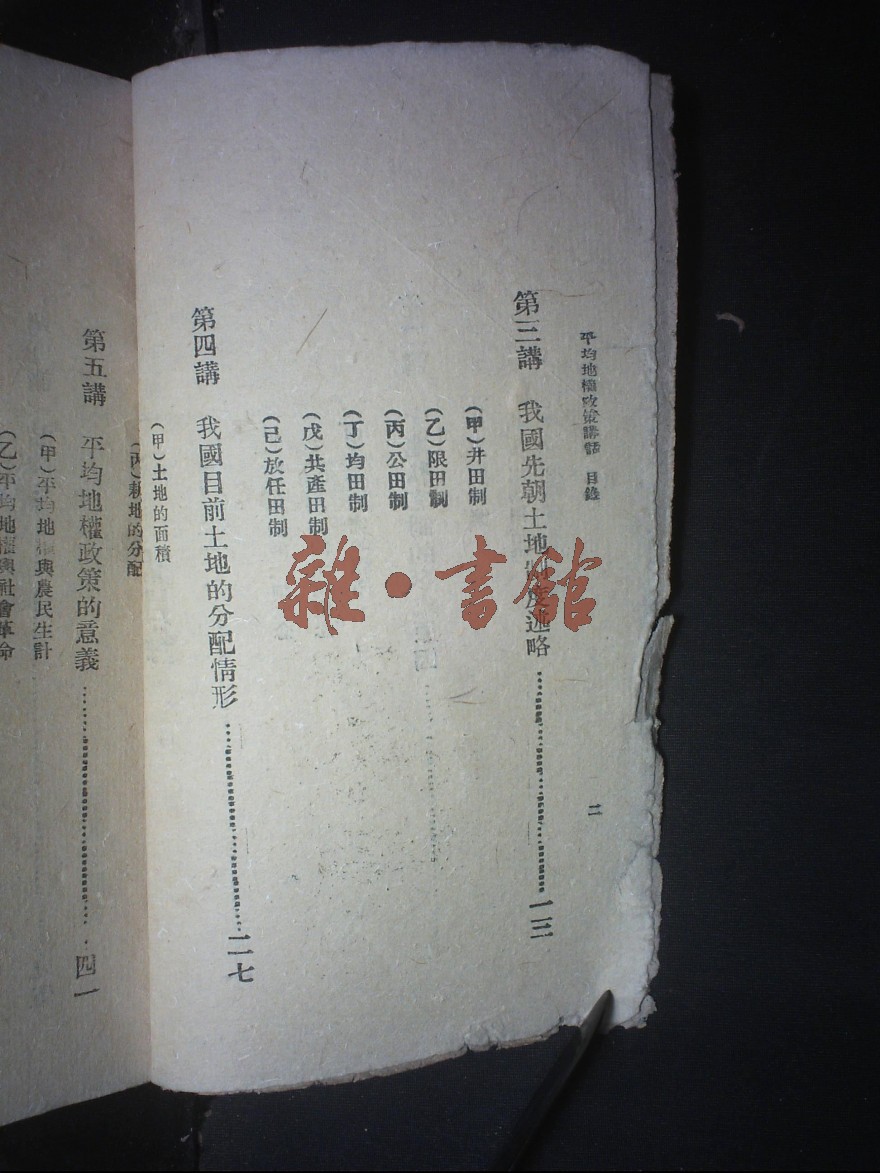 平均地權政策講話 目錄
二
第三講 我國先朝土地制度述略……一三
(甲)井田制
(乙)限田制
(丙)公田制
(丁)均田制
(戊)共產田制
(己)放任田制
第四講 我國目前土地的分配情形……二七
(甲)土地的面積
(丙)耕地的分配
第五講 平均地權政策的意義……四一
(甲)平均地權與農民生計
(乙)平均地權與社會革命
雜·書館